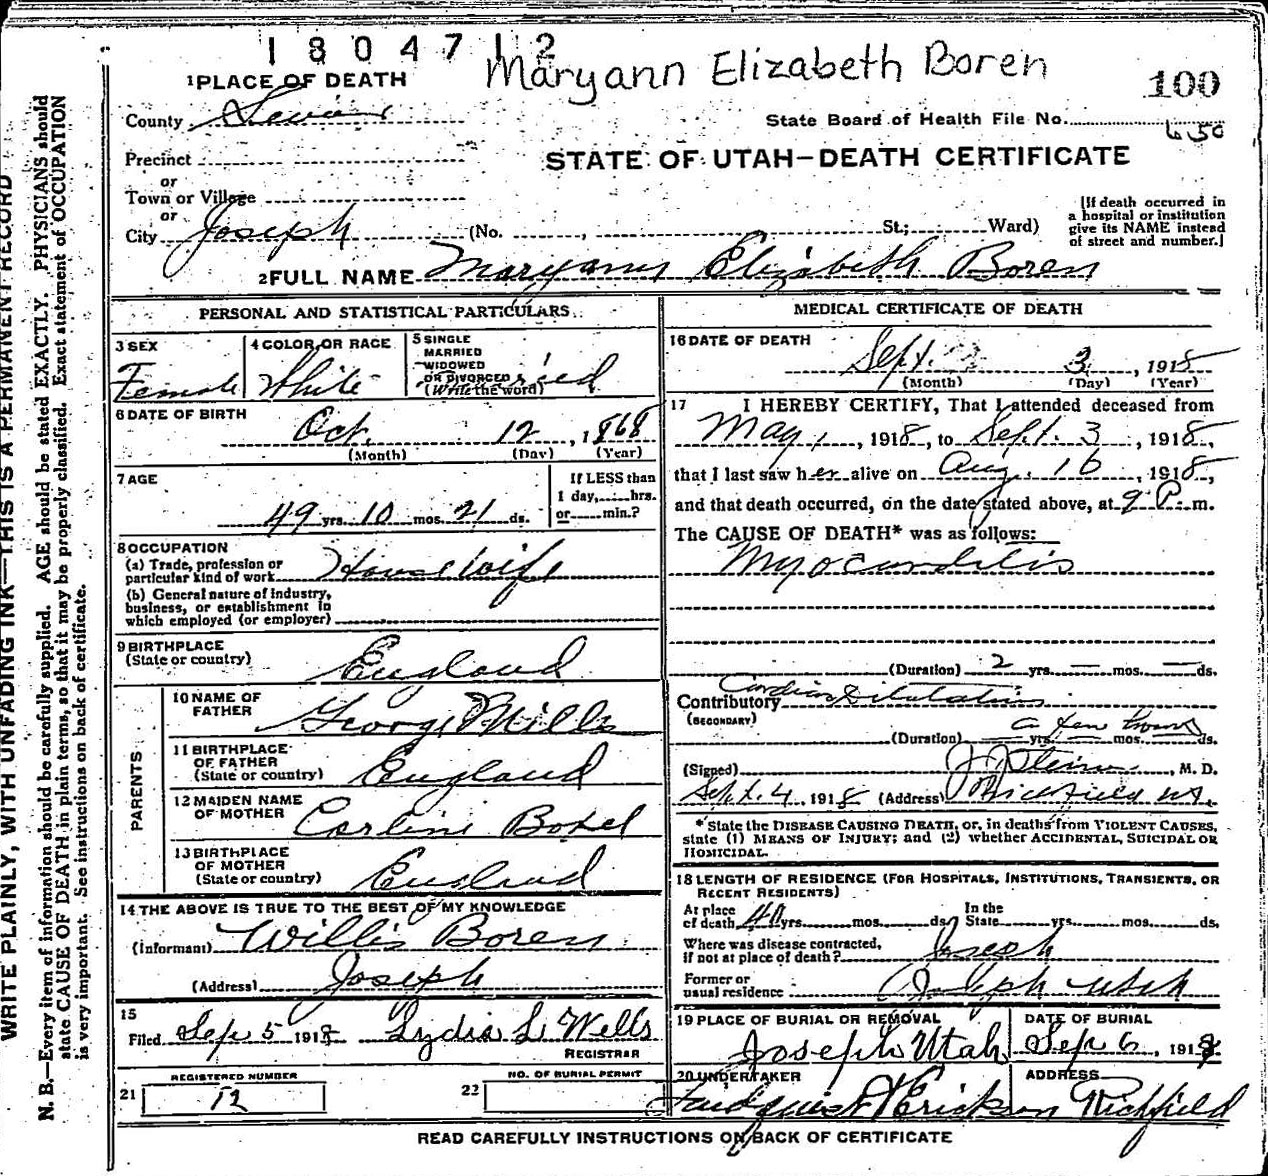 1804712
Maryann Elizabeth Boren
100
1 PLACE OF DEATH
County Sevier
State Board of Health File No.
650
Precinct
STATE OF UTAH—DEATH CERTIFICATE
or
Town or Village
or
City Joseph (No. , St.; Ward)
[If death occurred in
a hospital or institution
give its NAME instead
of street and number.]
2 FULL NAME Maryann Elizabeth Boren
PERSONAL AND STATISTICAL PARTICULARS
3 SEX
Female
4 COLOR OR RACE
White
5 SINGLE
MARRIED
WIDOWED
OR DIVORCED
(Write the word)
Married
6 DATE OF BIRTH
Oct. 12, 1868
(Month) (Day) (Year)
7 AGE
49 yrs. 10 mos. 21 ds.
If LESS than
1 day, hrs.
or min.?
8 OCCUPATION
(a) Trade, profession or
particular kind of work House Wife
(b) General nature of industry,
business, or establishment in
which employed (or employer)
9 BIRTHPLACE
(State or country) England
PARENTS
10 NAME OF
FATHER George Mills
11 BIRTHPLACE
OF FATHER
(State or country) England
12 MAIDEN NAME
OF MOTHER
13 BIRTHPLACE
OF MOTHER
(State or country) England
14 THE ABOVE IS TRUE TO THE BEST OF MY KNOWLEDGE
(Informant) Willis Boren
(Address) Joseph
15
Filed Sep 5 1918 Lydia L Wells
REGISTRAR
REGISTERED NUMBER
21 12
NO. OF BURIAL PERMIT
22
MEDICAL CERTIFICATE OF DEATH
16 DATE OF DEATH
Sept. 3, 1918
(Month) (Day) (Year)
17 I HEREBY CERTIFY, That I attended deceased from
May 1, 1918, to Sept. 3, 1918,
that I last saw her alive on Aug. 16, 1918,
and that death occurred, on the date stated above, at 9 P. m.
The CAUSE OF DEATH* was as follows:
Myocarditis
(Duration) 2 yrs. — mos. — ds.
Contributory Cardiac Dilatation
(SECONDARY)
a few hours
(Duration) — yrs. — mos. ds.
(Signed) , M. D.
Sept. 4, 1918 (Address) Richfield Ut.
* State the DISEASE CAUSING DEATH, or, in deaths from VIOLENT CAUSES,
state (1) MEANS OF INJURY; and (2) whether ACCIDENTAL, SUICIDAL OR
HOMICIDAL.
18 LENGTH OF RESIDENCE (FOR HOSPITALS, INSTITUTIONS, TRANSIENTS, OR
RECENT RESIDENTS)
At place
of death 40 yrs. mos. ds.
In the
State yrs. mos. ds.
Where was disease contracted,
if not at place of death? Joseph
Former or
usual residence Joseph Utah
19 PLACE OF BURIAL OR REMOVAL
Joseph Utah
DATE OF BURIAL
Sep 6, 1918
20 UNDERTAKER
Erickson
ADDRESS
Richfield
READ CAREFULLY INSTRUCTIONS ON BACK OF CERTIFICATE
WRITE PLAINLY, WITH UNFADING INK—THIS IS A PERMANENT RECORD
N. B.—Every item of information should be carefully supplied. AGE should be stated EXACTLY. PHYSICIANS should
state CAUSE OF DEATH in plain terms, so that it may be properly classified. Exact statement of OCCUPATION
is very important. See instructions on back of certificate.